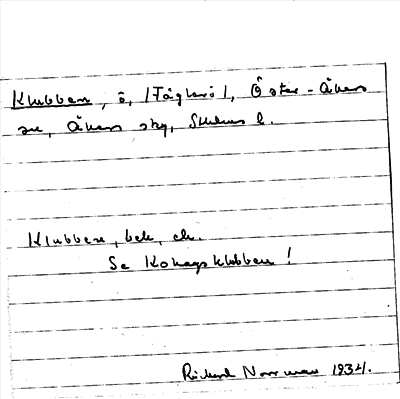 Klubben, ö, (Fåglarö), Öster-Åkers
sn, Åkers skg, Sthlms l.
Klubben, bek, ek.
Se Kohagsklubben!
Rickard Norrman 1934.